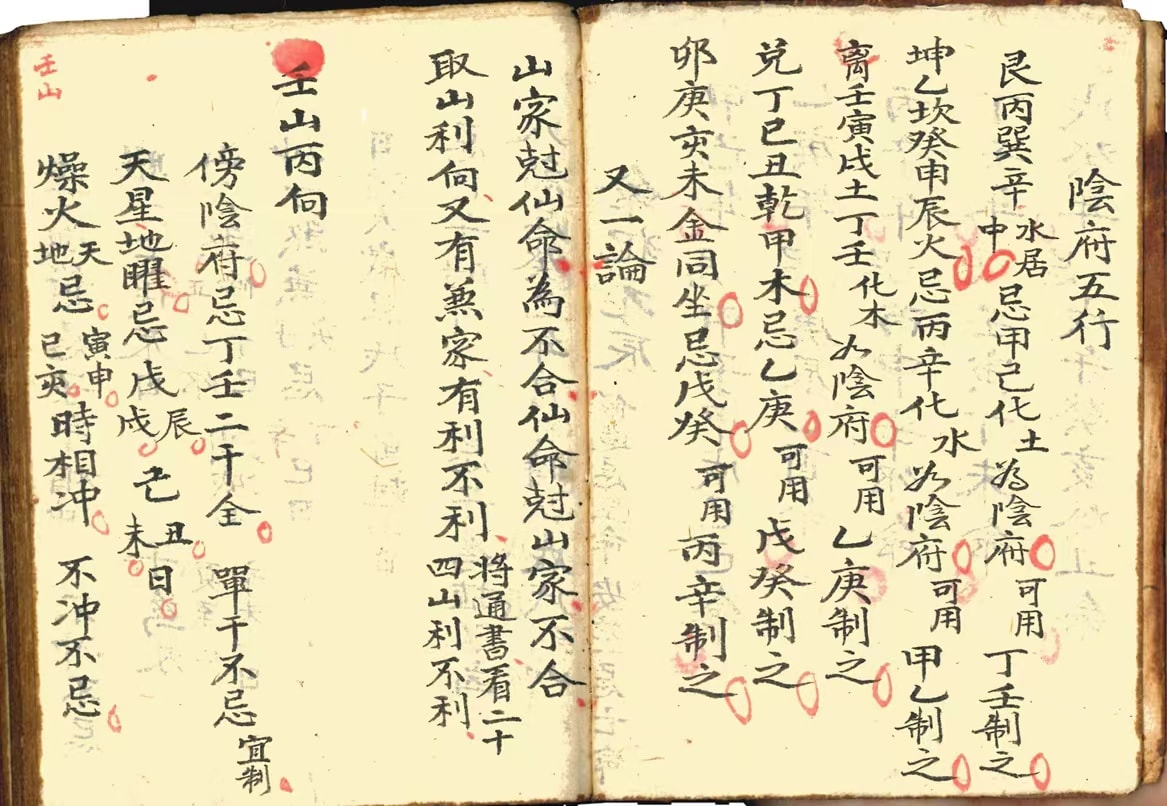 陰府五行
艮丙巽辛水居中忌甲己化土為陰府可用丁壬制之
坤乙坎癸申辰火忌丙辛化水為陰府可用甲乙制之
離壬寅戌土丁壬化木為陰府可用乙庚制之
兌丁巳丑乾甲木忌乙庚可用戊癸制之
卯庚亥未金同坐忌戊癸可用丙辛制之
又一論
山家尅仙命為不合仙命尅山家不合
取山利向又有兼家有利不利將通書看二十四山利不利
壬山
壬山丙向
傍陰府忌丁壬二干全單干不忌宜制
天星地曜忌戊辰戌己丑未日
燥火天地忌寅申巳亥時相冲不冲不忌